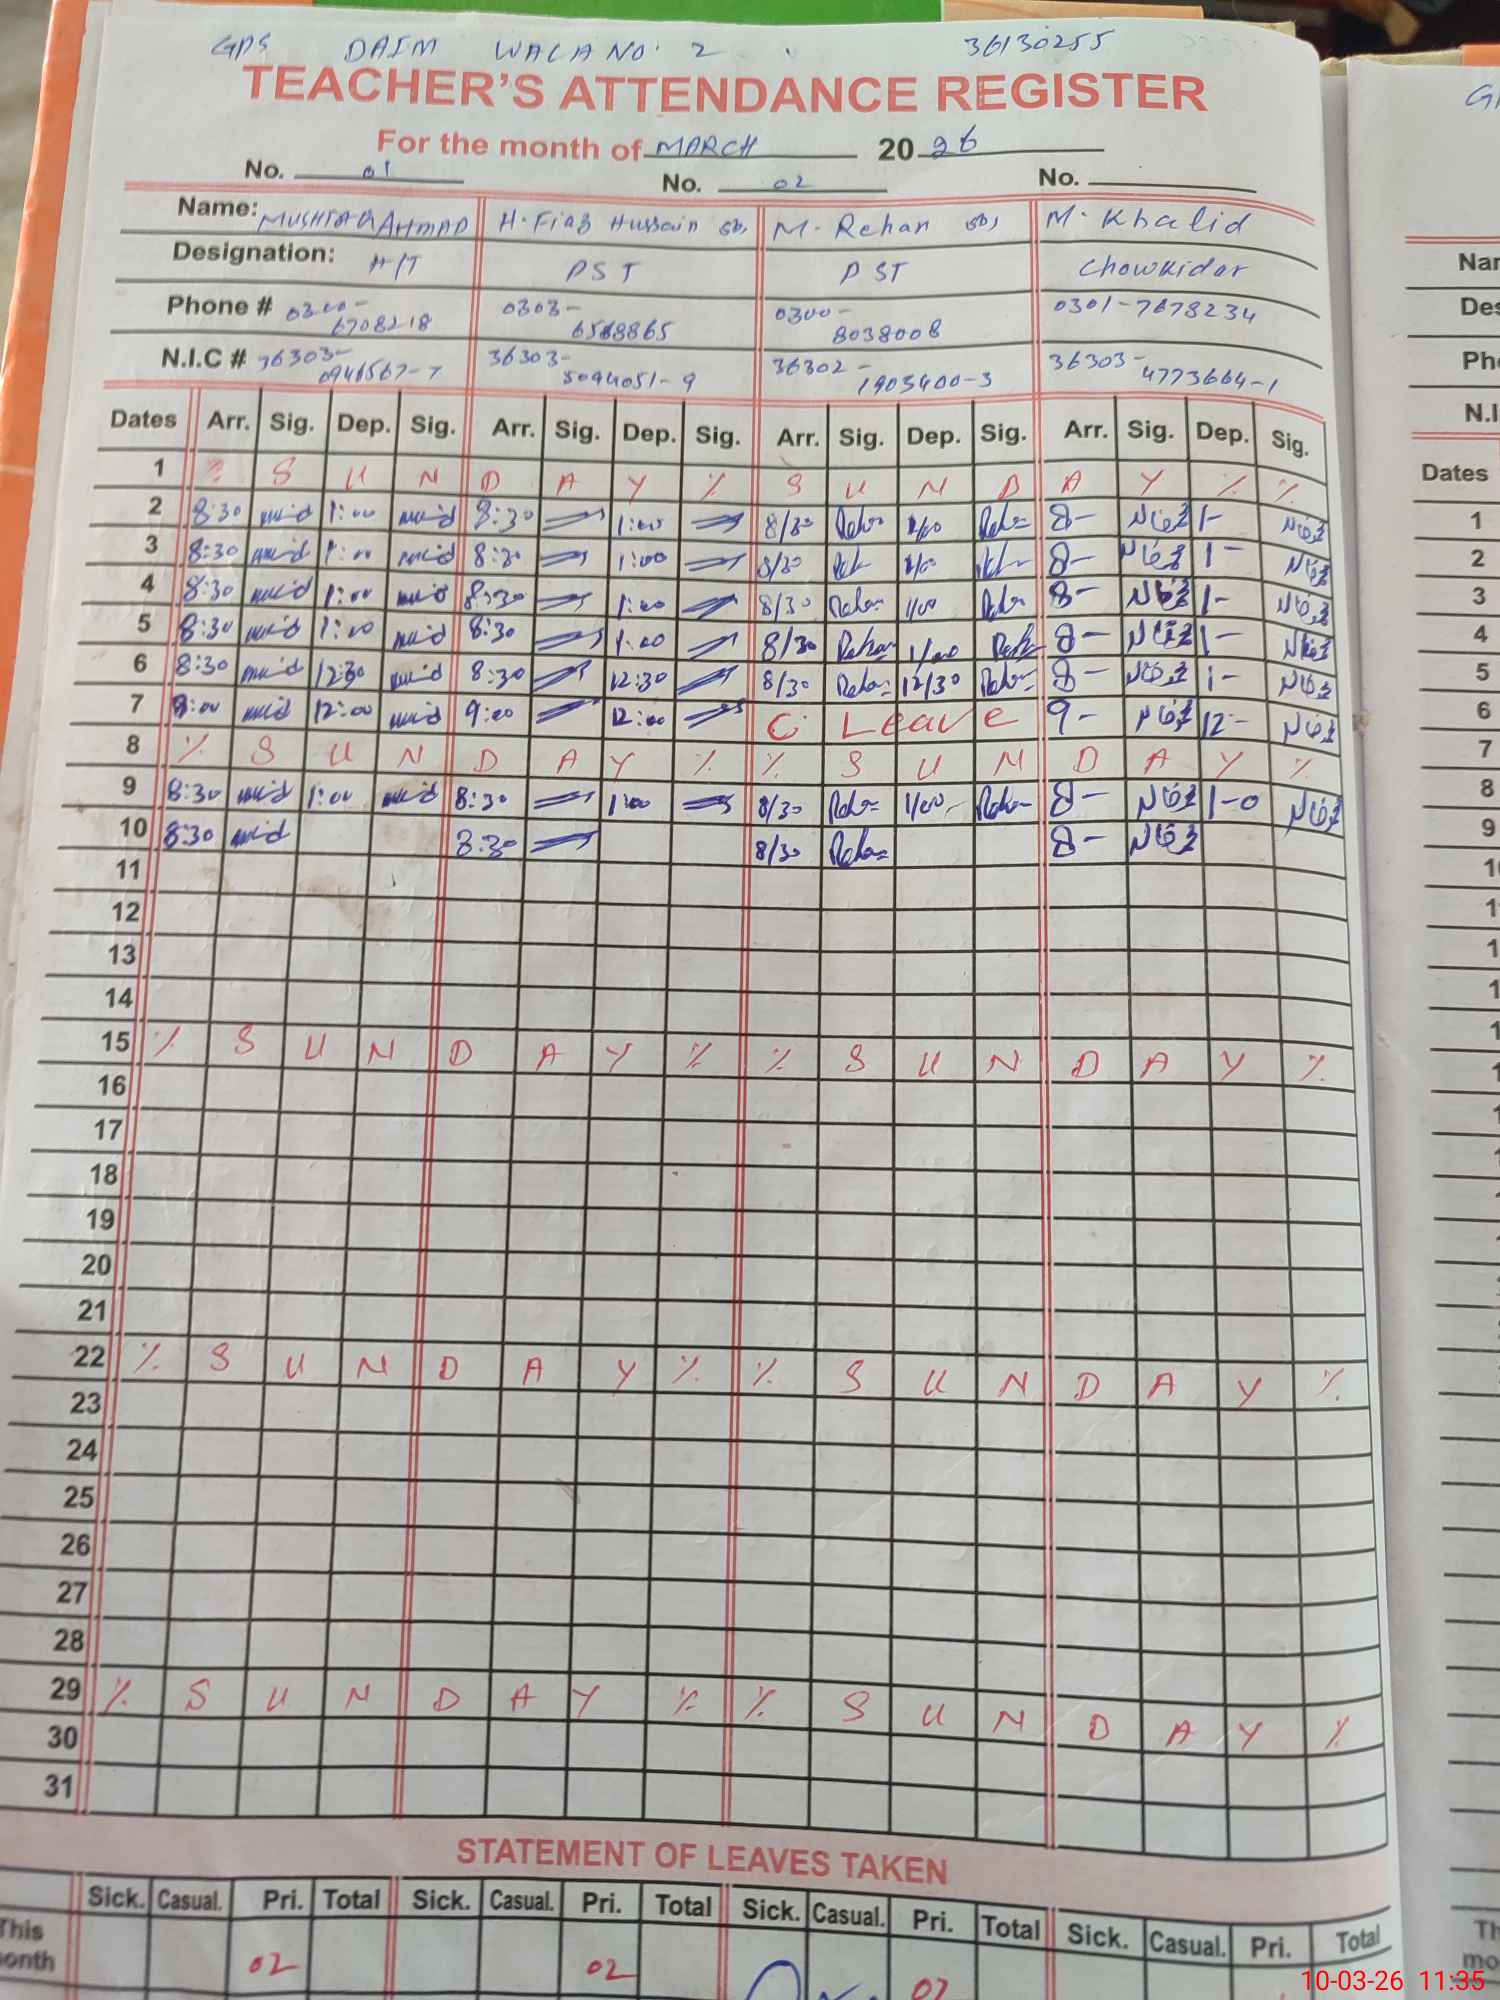 GPS DAIM WALA NO. 2 36130255
TEACHER'S ATTENDANCE REGISTER
For the month of MARCH 2026
No. 01 No. 02 No.
Name: MUSHTAQ AHMAD H. Fiaz Hussain Sb, M. Rehan Sb, M. Khalid
Designation: H/T PST PST Chowkidar
Phone # 0300-6708218 0303-6568865 0300-8038008 0301-7678234
N.I.C # 36303-0946567-7 36303-5094051-9 36302-1903400-3 36303-4773664-1
Dates Arr. Sig. Dep. Sig. Arr. Sig. Dep. Sig. Arr. Sig. Dep. Sig. Arr. Sig. Dep. Sig.
1 % S U N D A Y % S U N D A Y % %
2 8:30 1:00 8:30 1:00 8/30 Rehan 1/00 Rehan 8- 1-
3 8:30 1:00 8:30 1:00 8/30 1/00 8- 1-
4 8:30 1:00 8:30 1:00 8/30 Rehan 1/00 Rehan 8- 1-
5 8:30 1:00 8:30 1:00 8/30 Rehan 1/00 Rehan 8- 1-
6 8:30 12:30 8:30 12:30 8/30 Rehan 12/30 Rehan 8- 1-
7 9:00 12:00 9:00 12:00 C. Leave 9- 12-
8 % S U N D A Y % % S U N D A Y %
9 8:30 1:00 8:30 1:00 8/30 Rehan 1/00 Rehan 8- 1-0
10 8:30 8:30 8/30 Rehan 8-
11
12
13
14
15 % S U N D A Y % % S U N D A Y %
16
17
18
19
20
21
22 % S U N D A Y % % S U N D A Y %
23
24
25
26
27
28
29 % S U N D A Y % % S U N D A Y %
30
31
STATEMENT OF LEAVES TAKEN
Sick. Casual. Pri. Total Sick. Casual. Pri. Total Sick. Casual. Pri. Total Sick. Casual. Pri. Total
This month 02 02 02
Dates
1
2
3
4
5
6
7
8
9
10-03-26 11:35